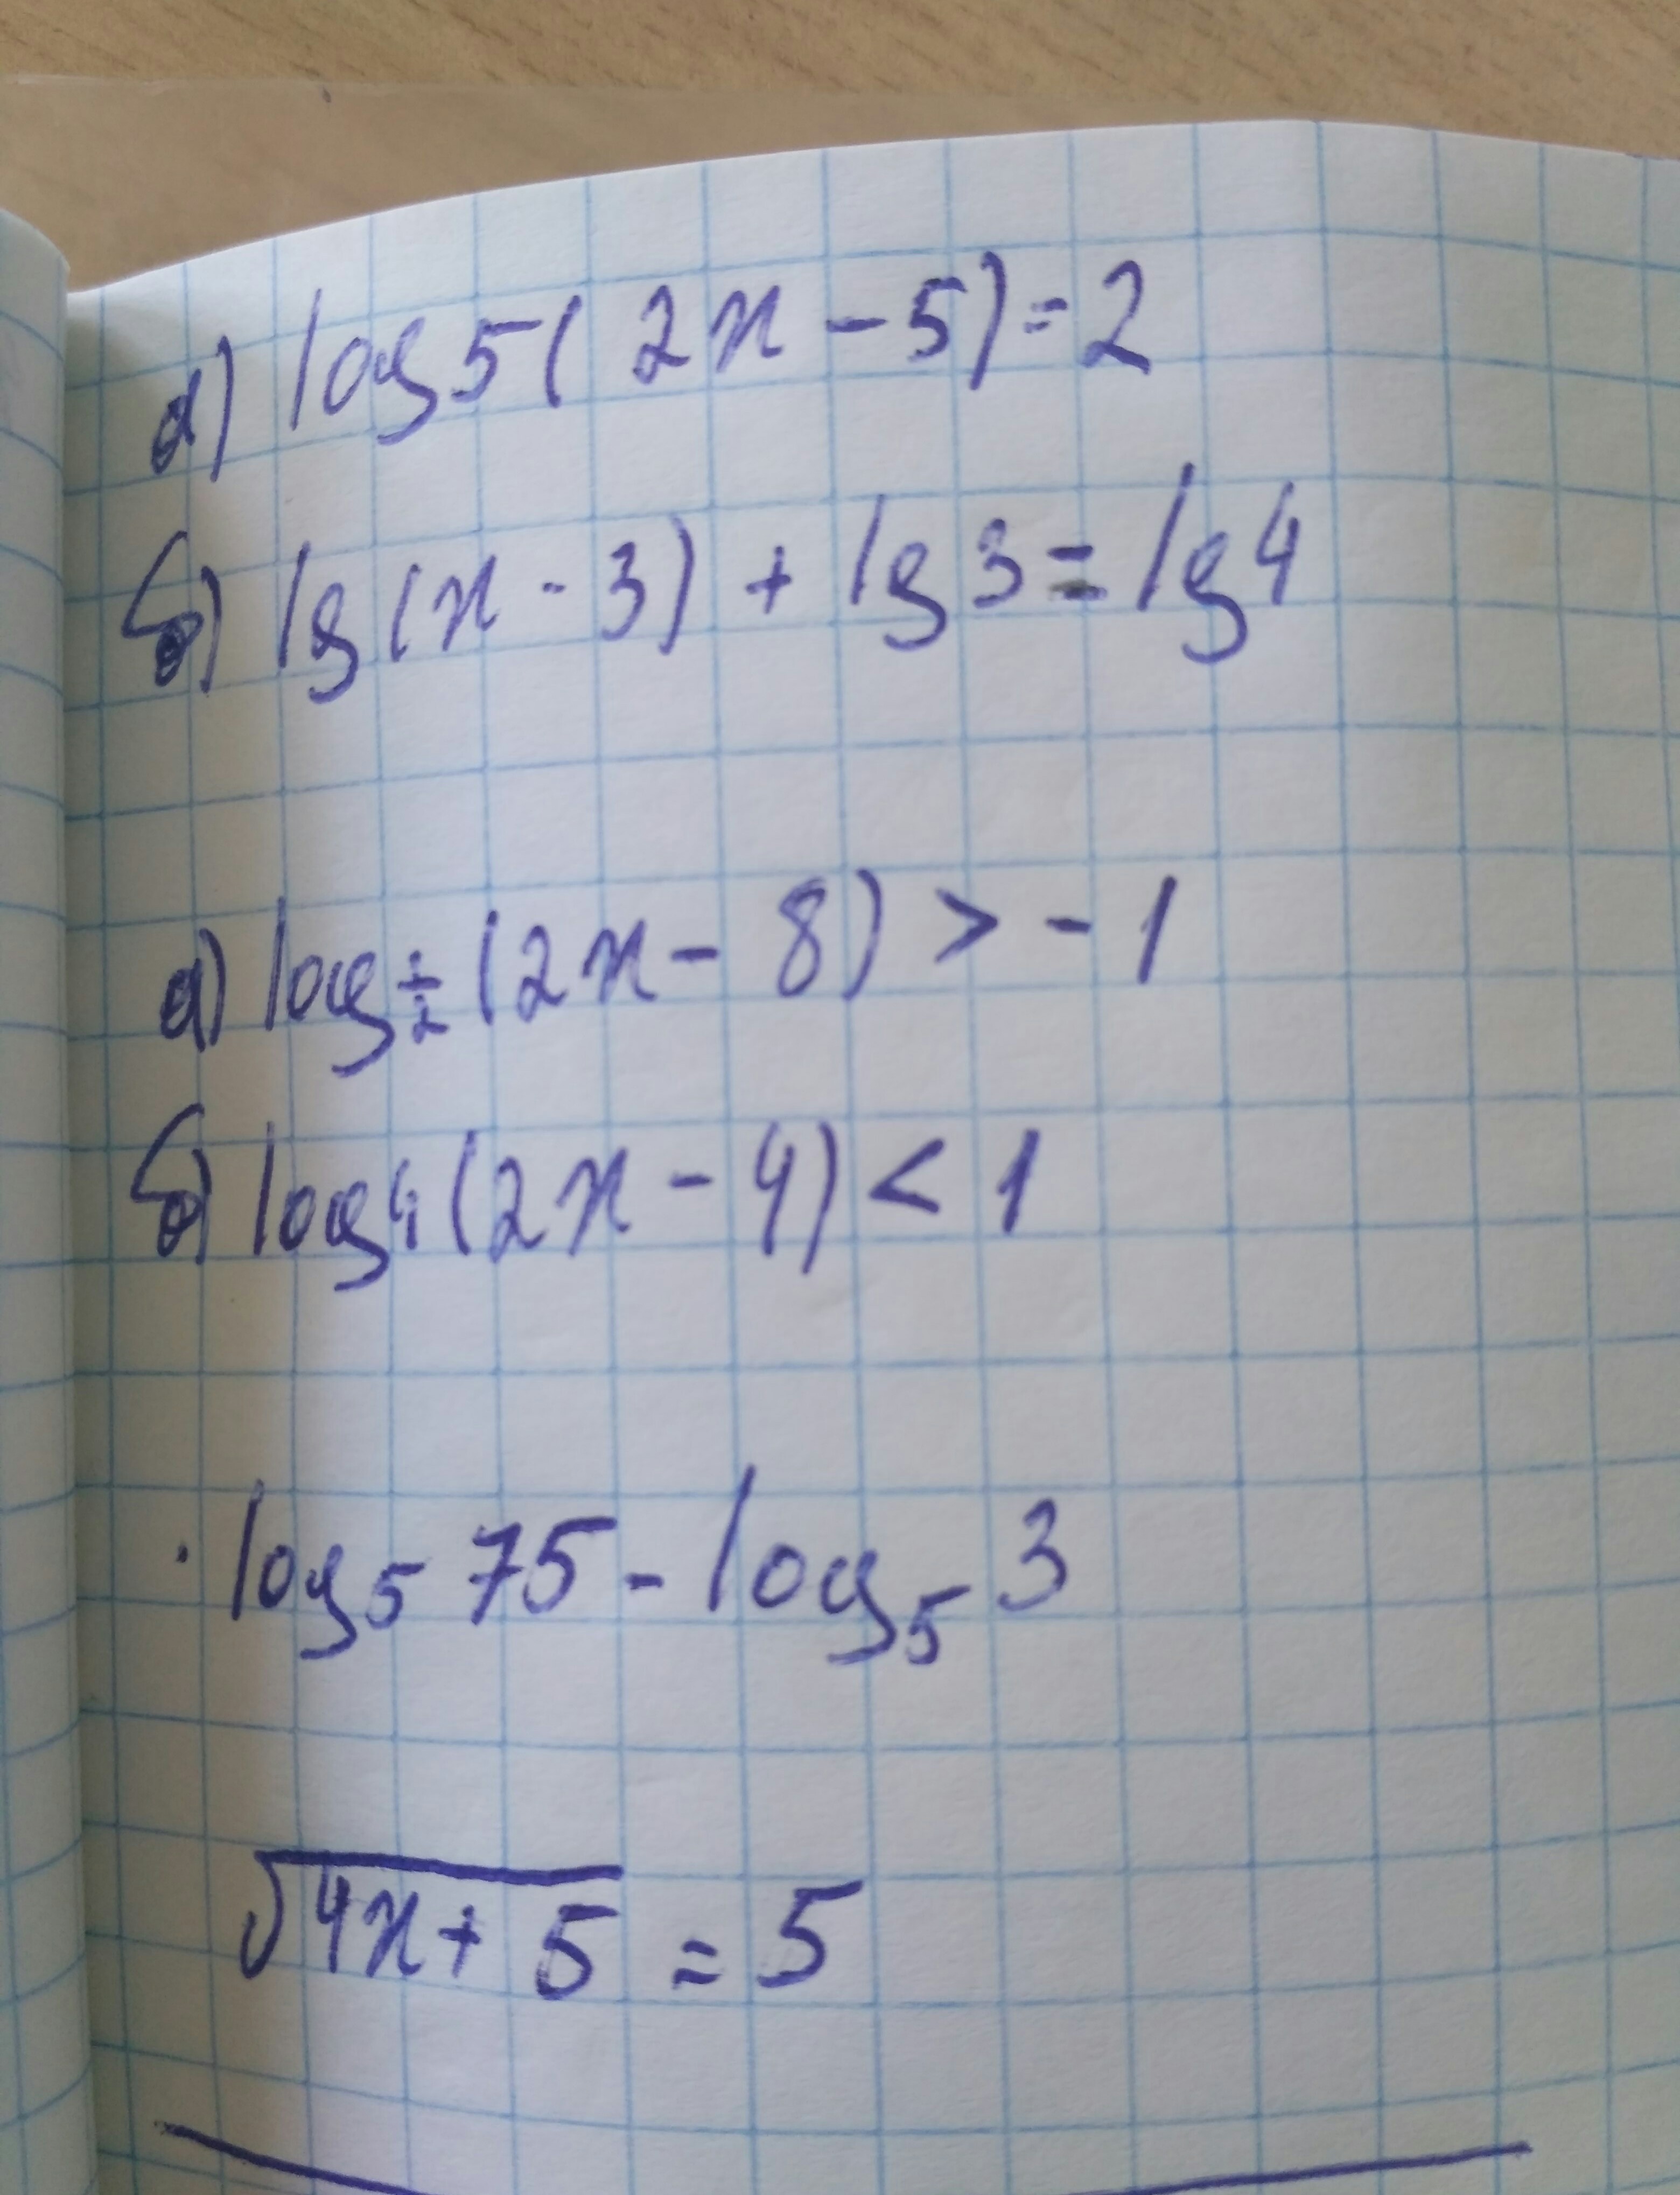 а) log5(2x-5)=2
б) lg(x-3)+lg3=lg4
а) log½(2x-8)>-1
б) log₄(2x-4)<1
· log₅75-log₅3
√4x+5=5